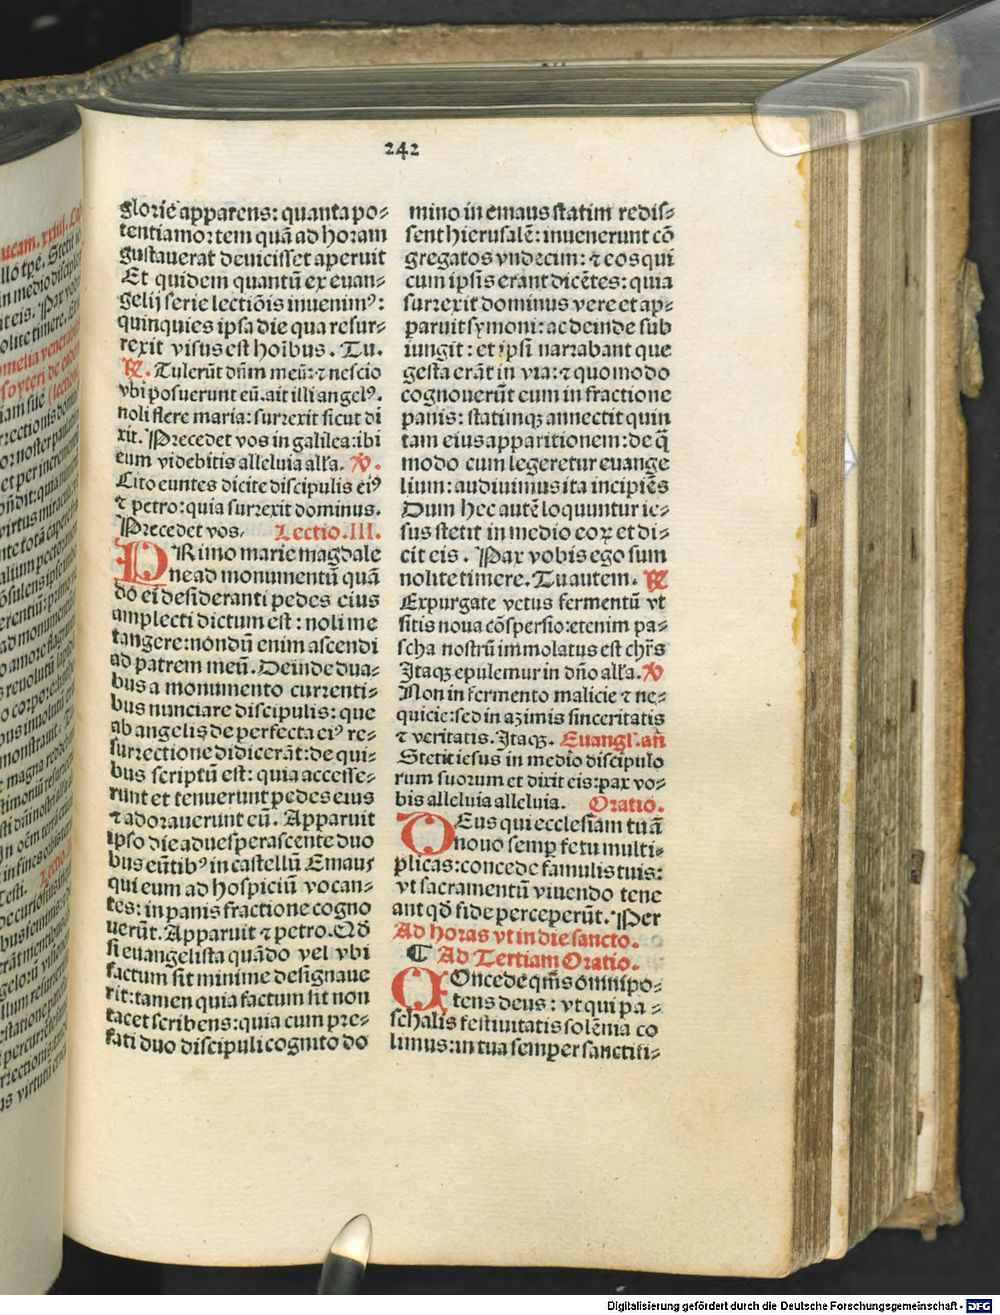 242
glorie apparens: quanta po⸗
tentia mortem quã ad horam
gustauerat deuicisset aperuit
Et quidem quantũ ex euan⸗
gelij serie lectiõis inuenimꝰ:
quinquies ipsa die qua resur⸗
rexit visus est hoĩbus. Tu.
℟. Tulerũt dñm meũ: ⁊ nescio
vbi posuerunt eũ. ait illi angelꝰ.
noli flere maria: surrexit sicut di
xit. Precedet vos in galilea: ibi
eum videbitis alleluia all'a. ℣.
Cito euntes dicite discipulis eiꝰ
⁊ petro: quia surrexit dominus.
Precedet vos. Lectio. III.
PRimo marie magdale
ne ad monumentũ quã
do ei desideranti pedes eius
amplecti dictum est: noli me
tangere: nondũ enim ascendi
ad patrem meũ. Deinde dua⸗
bus a monumento currenti⸗
bus nunciare discipulis: que
ab angelis de perfecta eiꝰ re⸗
surrectione didicerãt: de qui⸗
bus scriptũ est: quia accesse⸗
runt et tenuerunt pedes eius
⁊ adorauerunt eũ. Apparuit
ipso die aduesperascente duo
bus eũtibꝰ in castellũ Emaus
qui eum ad hospiciũ vocan⸗
tes: in panis fractione cogno
uerũt. Apparuit ⁊ petro. Qđ
si euangelista quãdo vel vbi
factum sit minime designaue
rit: tamen quia factum sit non
tacet scribens: quia cum pre⸗
fati duo discipuli cognito do
mino in emaus statim redis⸗
sent hierusalẽ: inuenerunt cõ
gregatos vndecim: ⁊ eos qui
cum ipsis erant dicẽtes: quia
surrexit dominus vere et ap⸗
paruit symoni: ac deinde sub
iungit: et ipsi narrabant que
gesta erãt in via: ⁊ quomodo
cognouerũt eum in fractione
panis: statimqꝫ annectit quin
tam eius apparitionem: de q̃
modo cum legeretur euange
lium: audiuimus ita incipiẽs
Dum hec autẽ loquuntur ie⸗
sus stetit in medio eoꝝ et di⸗
cit eis. Pax vobis ego sum
nolite timere. Tu autem. ℟
Expurgate vetus fermentũ vt
sitis noua cõspersio: etenim pa⸗
scha nostrũ immolatus est chr̃s
Itaqꝫ epulemur in dño all'a. ℣
Non in fermento malicie ⁊ ne⸗
quicie: sed in azimis sinceritatis
⁊ veritatis. Itaqꝫ. Euangl'. añ
Stetit iesus in medio discipulo
rum suorum et dixit eis: pax vo⸗
bis alleluia alleluia. Oratio.
DEus qui ecclesiam tuã
nouo semꝑ fetu multi⸗
plicas: concede famulis tuis:
vt sacramentũ viuendo tene
ant qđ fide perceperũt. Per
Ad horas vt in die sancto.
⸿ Ad Tertiam Oratio.
COncede qm̃s omnipo⸗
tens deus: vt qui pa⸗
schalis festiuitatis solẽnia co
limus: in tua semper sanctifi⸗
Digitalisierung gefördert durch die Deutsche Forschungsgemeinschaft - DFG